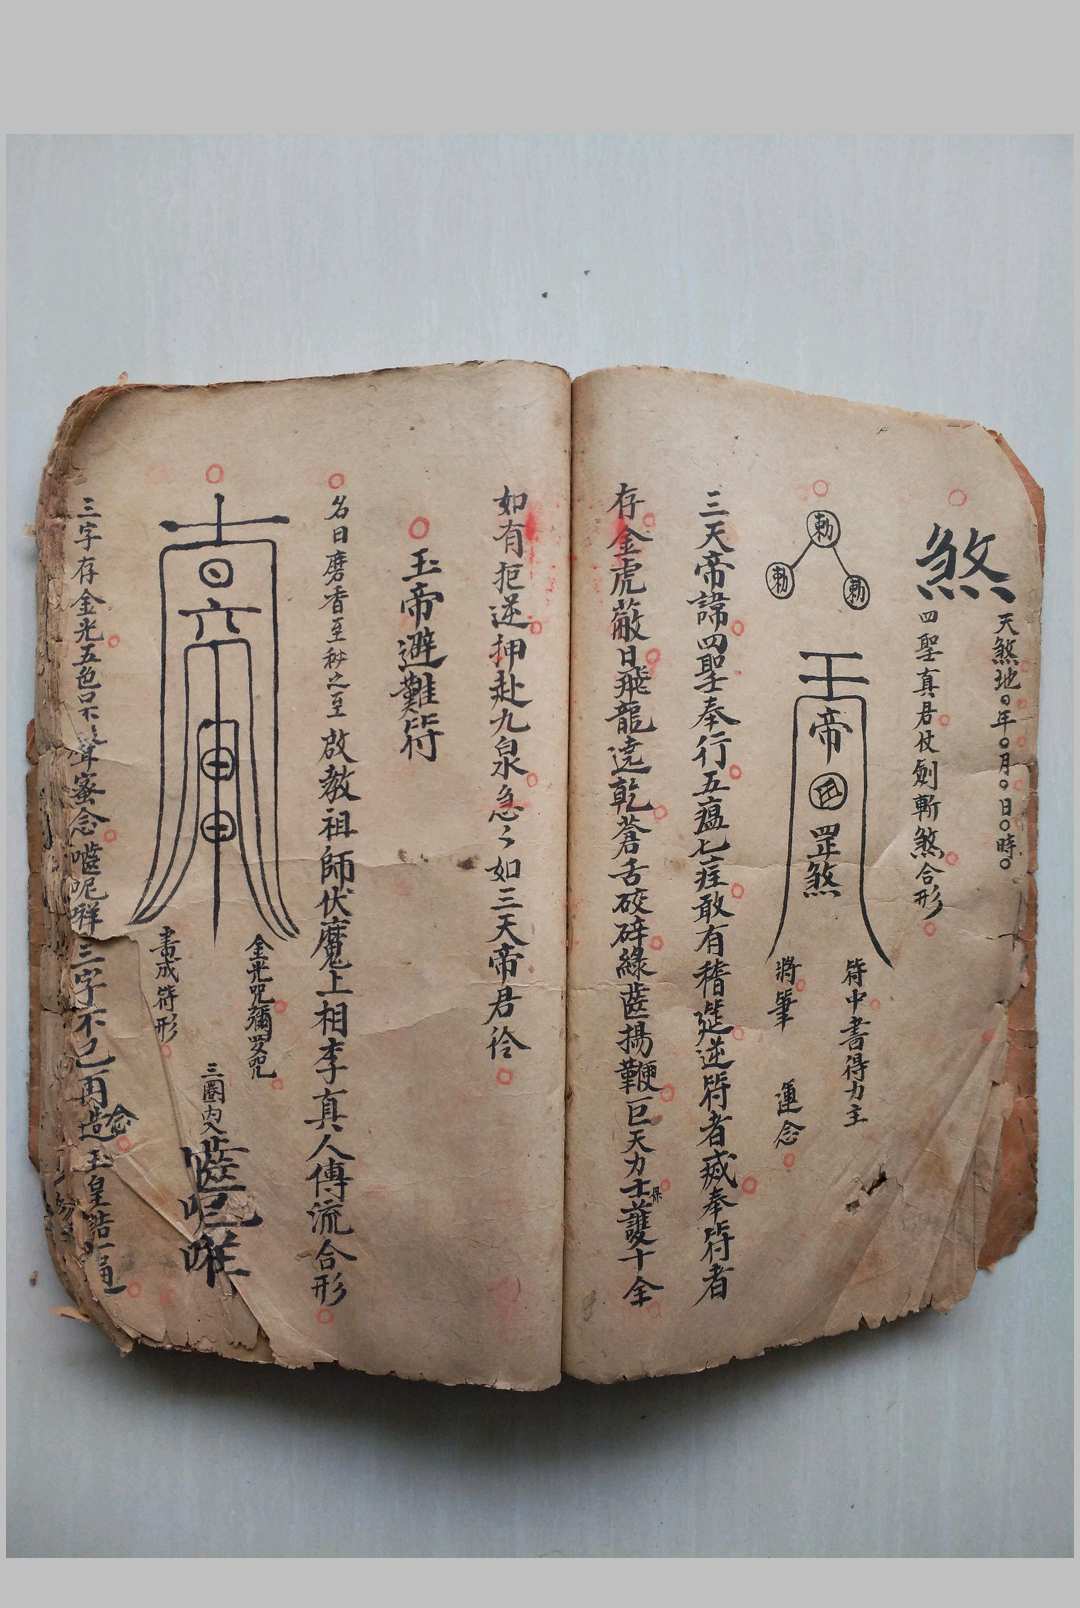 天煞地〇年〇月〇日〇時〇
煞
四聖真君仗劍斬煞合形
勅
勅
勅
王帝
罡煞
符中書得力主
將筆
運念
三天帝諱四聖奉行五瘟七疰敢有稽筵逆符者減奉符者
存金虎蔽日飛龍遶乾蒼舌砍碎綠齒揚鞭巨天力士保護十全
如有拒逆押赴九泉急々如三天帝君令
玉帝避難符
名曰磨香至秘之至啟教祖師伏魔上相李真人傳流合形
日六
甲
甲
金光咒彌罗咒
三圈內又
呢
畫成符形
三字存金光五色口不聲蜜念呢三字不已再念造玉皇誥一遍